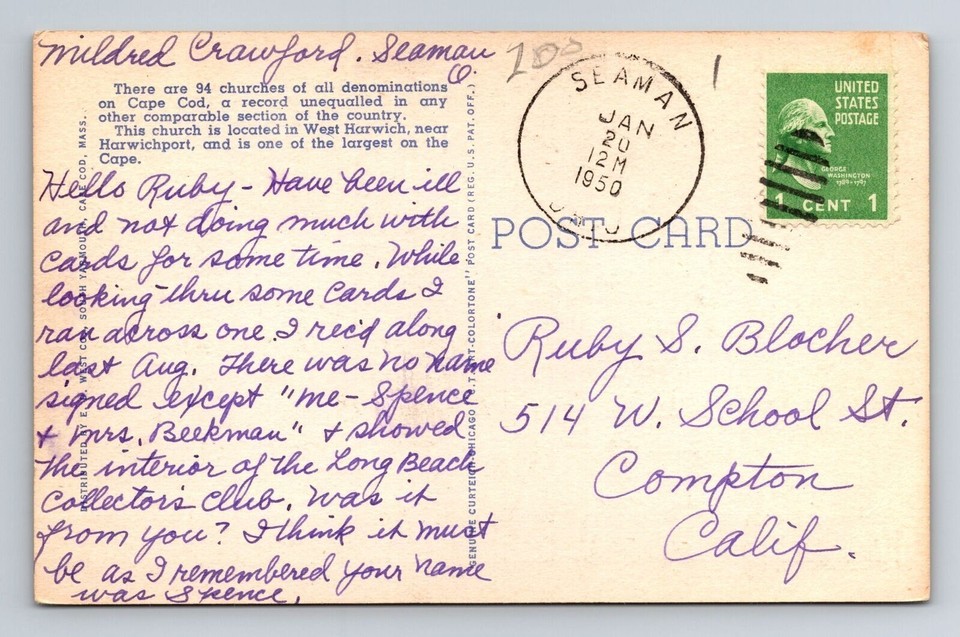 Mildred Crawford. Seaman
O.
There are 94 churches of all denominations
on Cape Cod, a record unequalled in any
other comparable section of the country.
This church is located in West Harwich, near
Harwichport, and is one of the largest on the
Cape.
Hello Ruby - Have been ill
and not doing much with
cards for some time. While
looking thru some cards I
ran across one I rec'd along
last Aug. There was no name
signed except "me - Spence
+ Mrs. Beekman" + showed
the interior of the Long Beach
Collector's Club. Was it
from you? I think it must
be as I remembered your name
was Spence.
DISTRIBUTED BY E. D. WEST CO., SOUTH YARMOUTH, CAPE COD, MASS.
GENUINE CURTEICH-CHICAGO "C.T. ART-COLORTONE" POST CARD (REG. U. S. PAT. OFF.)
200
1
SEAMAN
JAN
20
12 M
1950
OHIO
UNITED
STATES
POSTAGE
GEORGE
WASHINGTON
1789-1797
1 CENT 1
POST CARD
Ruby S. Blocher
514 W. School St.
Compton
Calif.